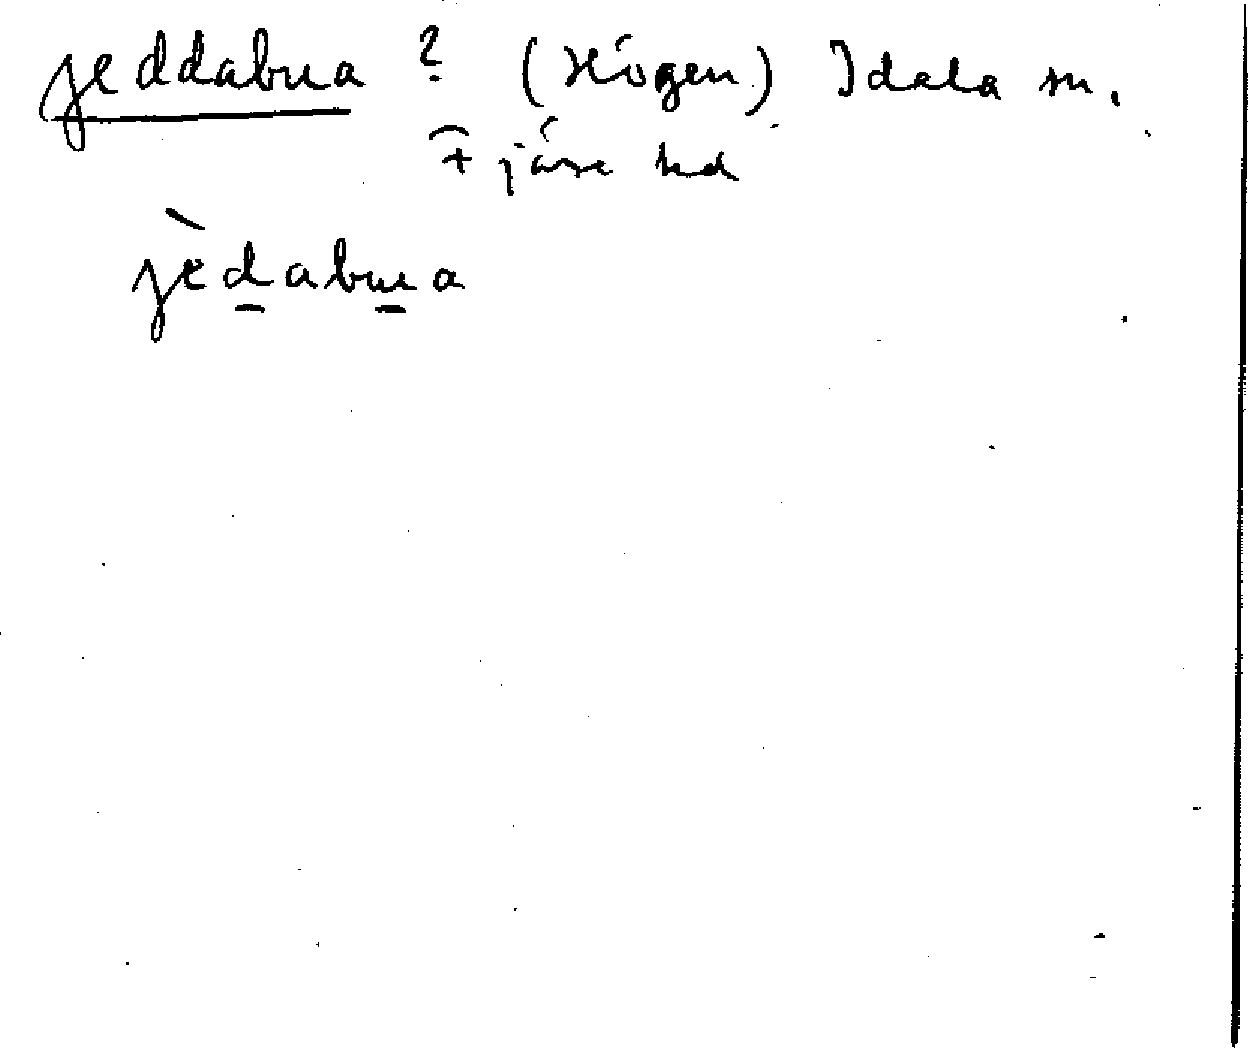 jeddabua ? (Högen) Idala sn.
jära
jèdabua